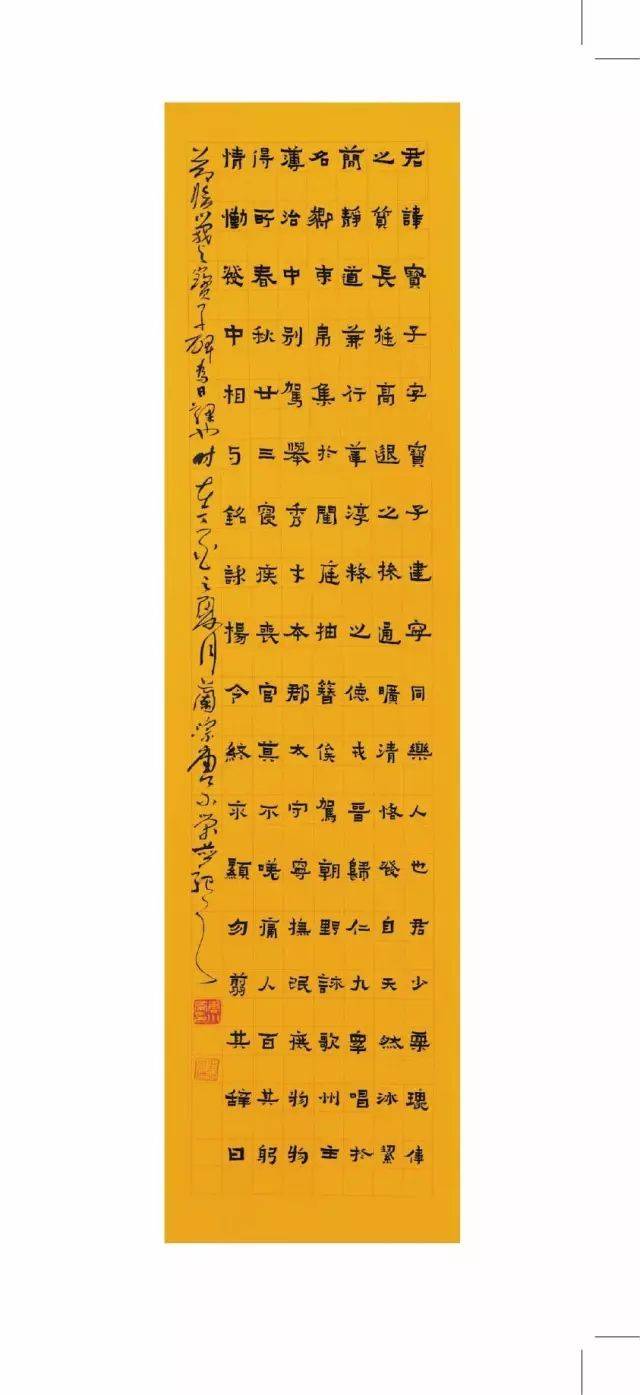 君諱寶子字寶子建寧同樂人也君少稟瓌偉
之質長挺高邈之操通曠清恪發自天然冰絜
簡靜道兼行葦淳粹之德戎晉歸仁九皋唱於
名鄉束帛集於閨庭抽簪俟駕朝野詠歌州主
薄治中別駕舉秀才本郡太守寧撫氓庶物物
得所春秋廿三寢疾喪官莫不嗟痛人百其躬
情慟發中相与銘誄揚令終永顯勿翦其辭曰
節臨爨之寶子碑為日課也時在之夏月蘭